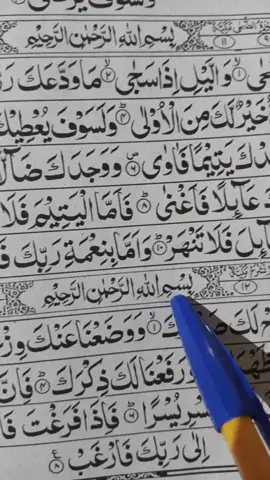 وَلَسَوْفَ يَرْضٰى
بِسْمِ اللهِ الرَّحْمٰنِ الرَّحِيْمِ
١١
وَالَّيْلِ اِذَا سَجٰى ۙ﴿٢﴾ مَا وَدَّعَكَ
خَيْرٌ لَّكَ مِنَ الْاُوْلٰى ﴿٤﴾ وَلَسَوْفَ يُعْطِيْكَ
يَتِيْمًا فَاٰوٰى ﴿٦﴾ وَوَجَدَكَ ضَآلًّا
عَآئِلًا فَاَغْنٰى ﴿٨﴾ فَاَمَّا الْيَتِيْمَ فَلَا
فَلَا تَنْهَرْ ﴿١٠﴾ وَاَمَّا بِنِعْمَةِ رَبِّكَ
بِسْمِ اللهِ الرَّحْمٰنِ الرَّحِيْمِ
١٢
لَكَ ﴿١﴾ وَوَضَعْنَا عَنْكَ
وَرَفَعْنَا لَكَ ذِكْرَكَ ﴿٤﴾ فَاِنَّ
يُسْرًا ﴿٦﴾ فَاِذَا فَرَغْتَ
اِلٰى رَبِّكَ فَارْغَبْ ﴿٨﴾